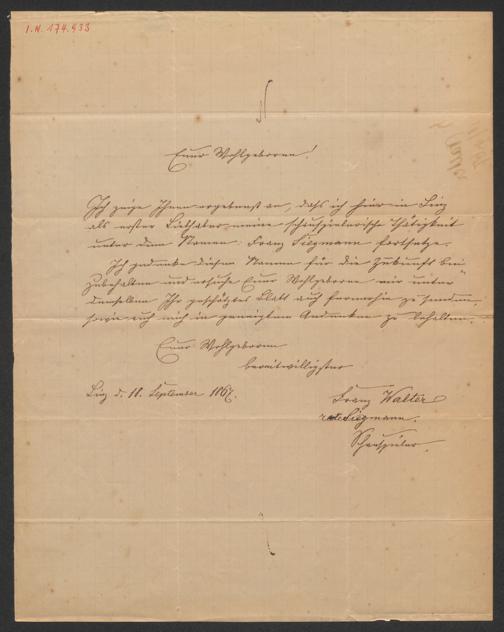 I.N. 174.933
Euer Wohlgeboren!
Ich zeige Ihnen ergebenst an, daß ich hier in Linz
als erster Liebhaber meine schauspielerische Thätigkeit
unter dem Namen Franz Siegmann fortsetze.
Ich gedenke diesen Namen für die Zukunft bei-
zubehalten und ersuche Euer Wohlgeboren mir unter
demselben Ihr geschätztes Blatt auch fernerhin zu senden,
sowie auch mich in geneigtem Andenken zu behalten.
Euer Wohlgeboren
bereitwilligster
Linz d. 11. September 1867.
Franz Walter
Siegmann.
Schauspieler.